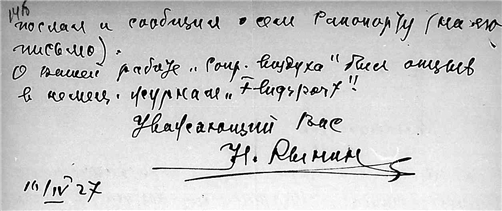 146
послал и сообщил о сем Рапопорту (на его
письмо).
О вашей работе „Сопр. воздуха“ был отзыв
в немец. журнале „Flugsport“!
Уважающий Вас
Н. Рынин
11/IV 27